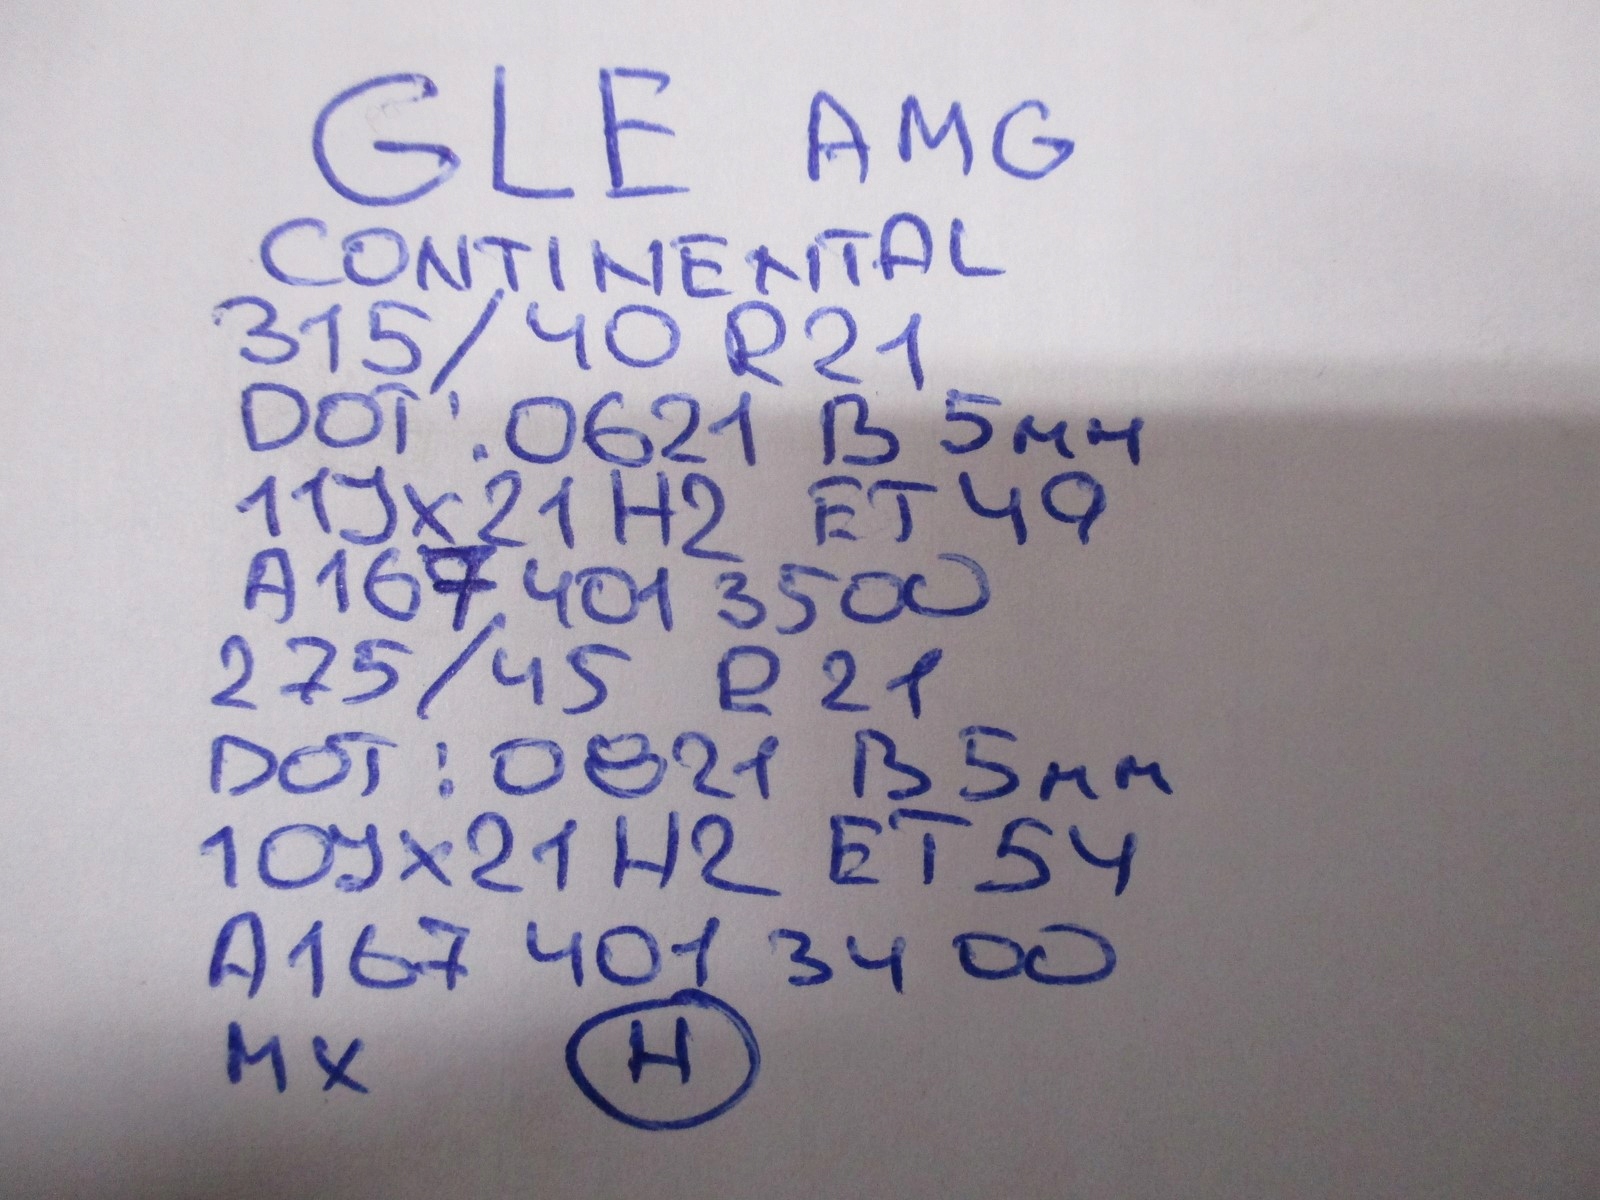 GLE AMG
CONTINENTAL
315/40 R21
DOT: 0621 B 5мм
11Jx21H2 ET49
A167 401 3500
275/45 R21
DOT: 0821 B 5мм
10Jx21H2 ET54
A167 401 3400
MX H